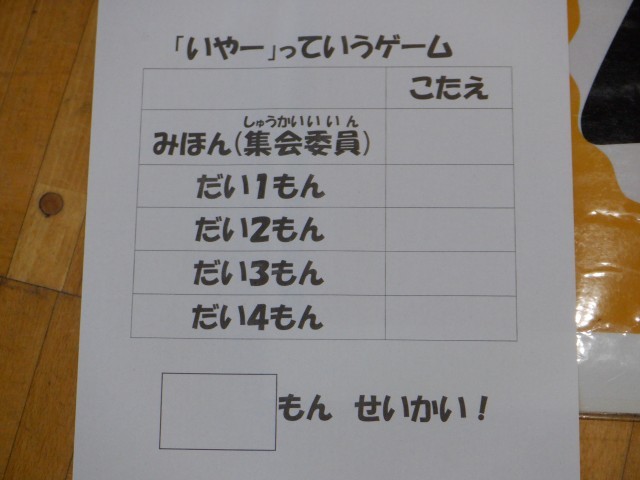 「いやー」っていうゲーム
こたえ
しゅうかいいいん
みほん(集会委員)
だい1もん
だい2もん
だい3もん
だい4もん
もん せいかい!